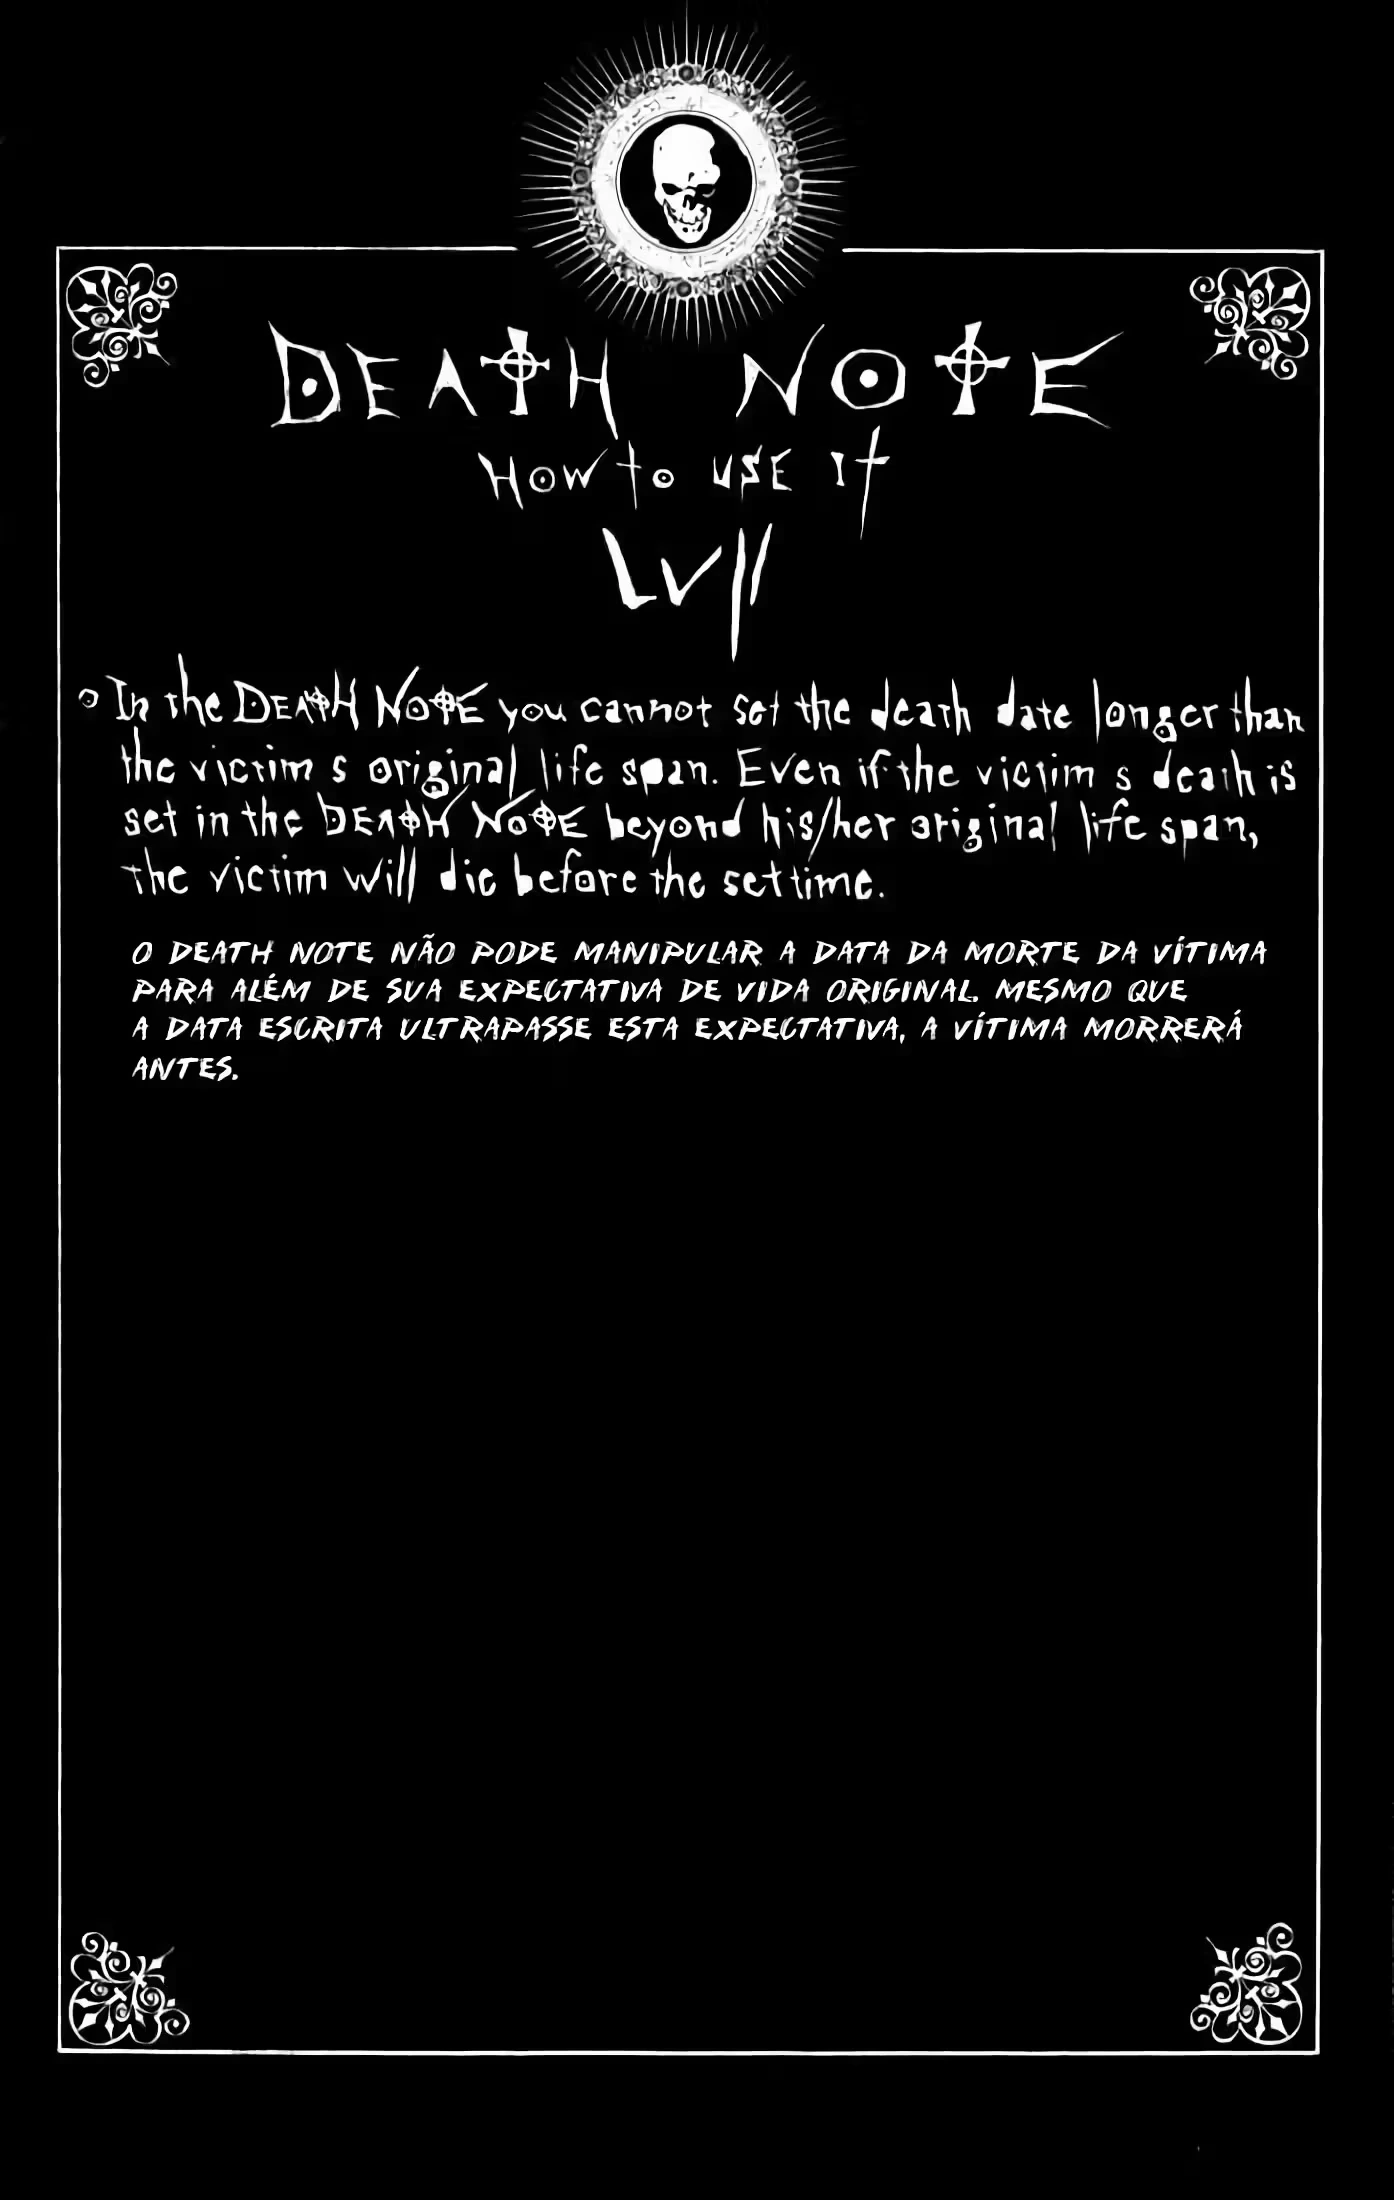 DEATH NOTE
HOW to USE It
LVII
In the DEATH NOTE you cannot set the death date longer than
the victim s original life span. Even if the victim s death is
set in the DEATH NOTE beyond his/her original life span,
the victim will die before the set time.
O DEATH NOTE NÃO PODE MANIPULAR A DATA DA MORTE DA VÍTIMA
PARA ALÉM DE SUA EXPECTATIVA DE VIDA ORIGINAL. MESMO QUE
A DATA ESCRITA ULTRAPASSE ESTA EXPECTATIVA, A VÍTIMA MORRERÁ
ANTES.